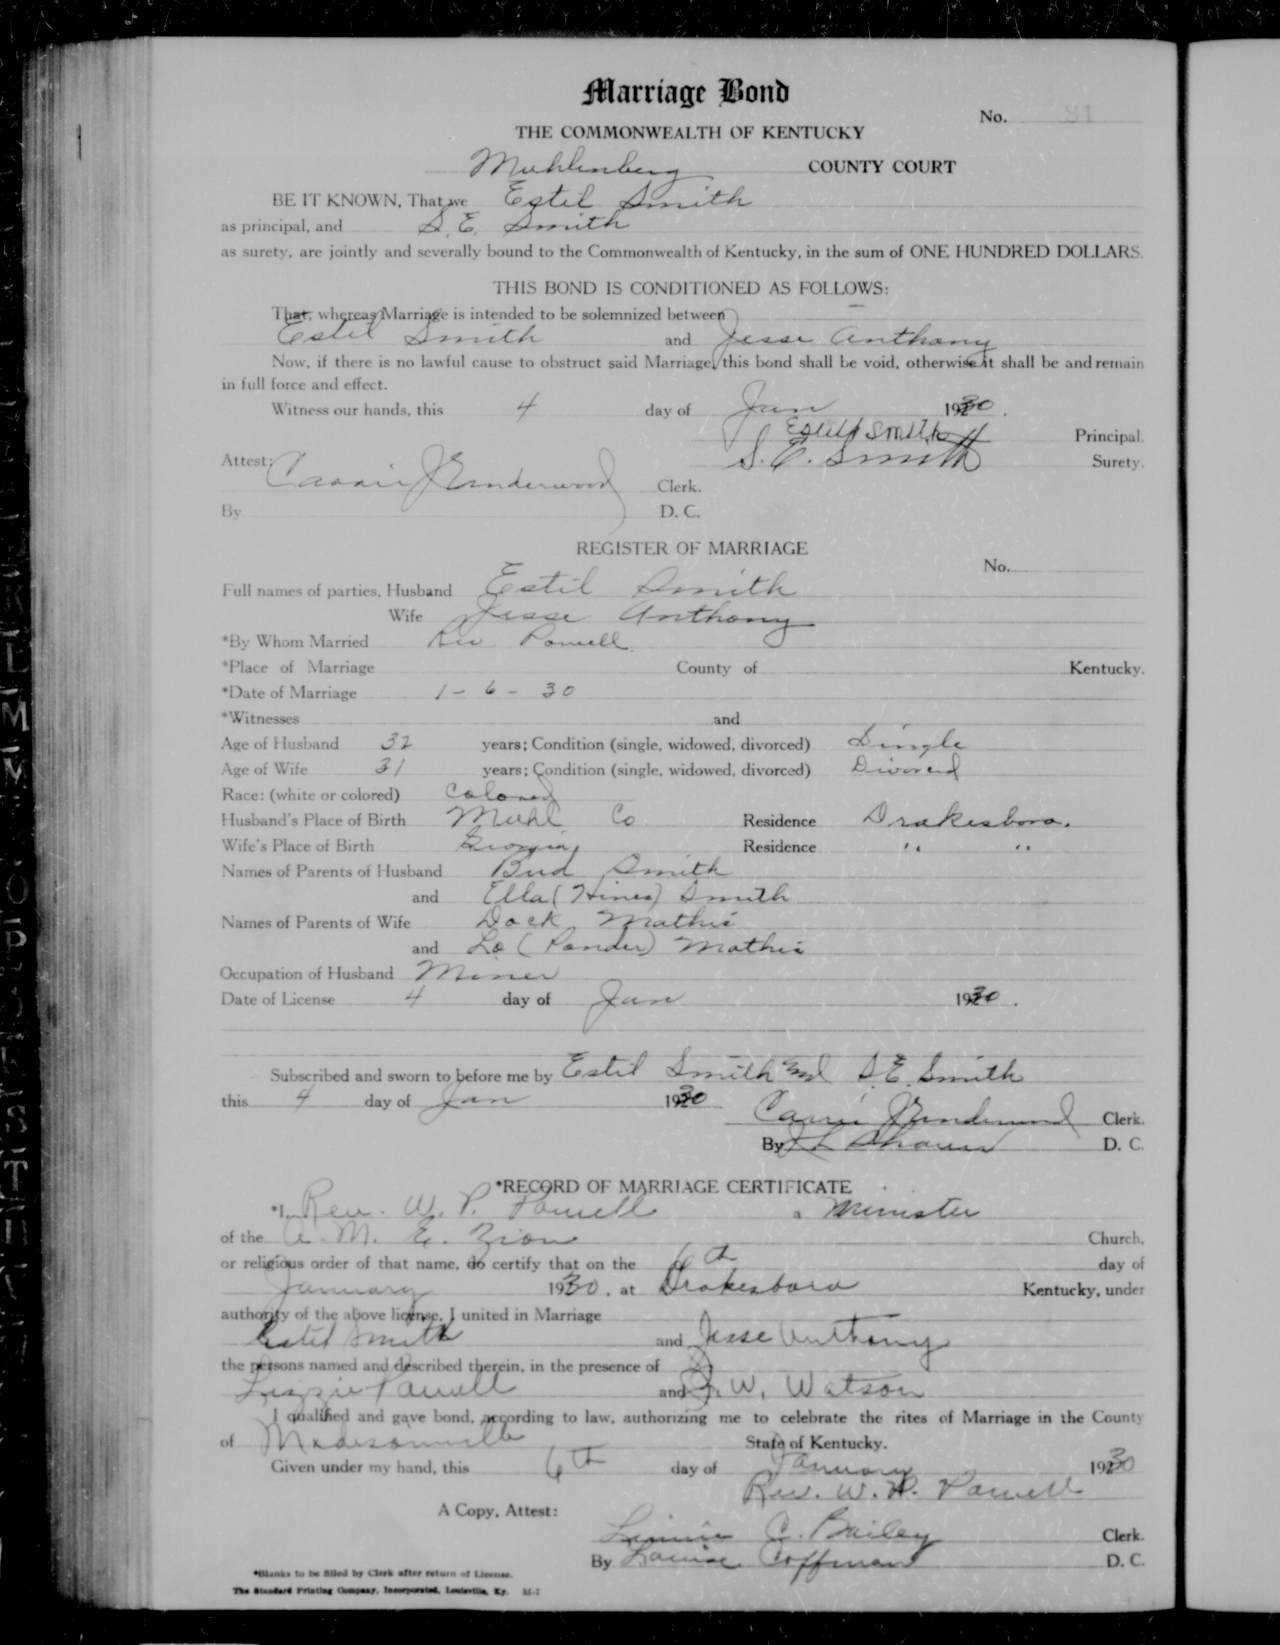 Marriage Bond
No. 81
THE COMMONWEALTH OF KENTUCKY
Muhlenberg COUNTY COURT
BE IT KNOWN, That we Estil Smith
as principal, and S. E. Smith
as surety, are jointly and severally bound to the Commonwealth of Kentucky, in the sum of ONE HUNDRED DOLLARS.
THIS BOND IS CONDITIONED AS FOLLOWS:
That, whereas Marriage is intended to be solemnized between
Estil Smith and Jesse Anthony
Now, if there is no lawful cause to obstruct said Marriage, this bond shall be void, otherwise it shall be and remain
in full force and effect.
Witness our hands, this 4 day of Jan 1930.
Estill Smith Principal.
S. E. Smith Surety.
Attest: Carrie J Underwood Clerk.
By D. C.
REGISTER OF MARRIAGE
No.
Full names of parties, Husband Estil Smith
Wife Jesse Anthony
*By Whom Married Rev Powell
*Place of Marriage County of Kentucky.
*Date of Marriage 1 - 6 - 30
*Witnesses and
Age of Husband 32 years; Condition (single, widowed, divorced) Single
Age of Wife 31 years; Condition (single, widowed, divorced) Divorced
Race: (white or colored) Colored
Husband's Place of Birth Muhl Co Residence Drakesboro.
Wife's Place of Birth Georgia Residence " "
Names of Parents of Husband Bud Smith
and Ella (Hines) Smith
Names of Parents of Wife Dock Mathis
and Lo (Ponder) Mathis
Occupation of Husband Miner
Date of License 4 day of Jan 1930.
Subscribed and sworn to before me by Estil Smith and S. E. Smith
this 4 day of Jan 1930
Carrie J Underwood Clerk.
By D. C.
*RECORD OF MARRIAGE CERTIFICATE
*I, Rev. W. P. Powell a Minister
of the A. M. E. Zion Church,
or religious order of that name, do certify that on the 6th day of
January 1930, at Drakesboro Kentucky, under
authority of the above license, I united in Marriage
Estil Smith and Jesse Anthony
the persons named and described therein, in the presence of
Lizzie Powell and J. W. Watson
I qualified and gave bond, according to law, authorizing me to celebrate the rites of Marriage in the County
of Madisonville State of Kentucky.
Given under my hand, this 6th day of January 1930
Rev. W. P. Powell
A Copy, Attest:
C. Bailey Clerk.
By Louise Coffman D. C.
*Blanks to be filled by Clerk after return of License.
The Standard Printing Company, Incorporated, Louisville, Ky. M-7